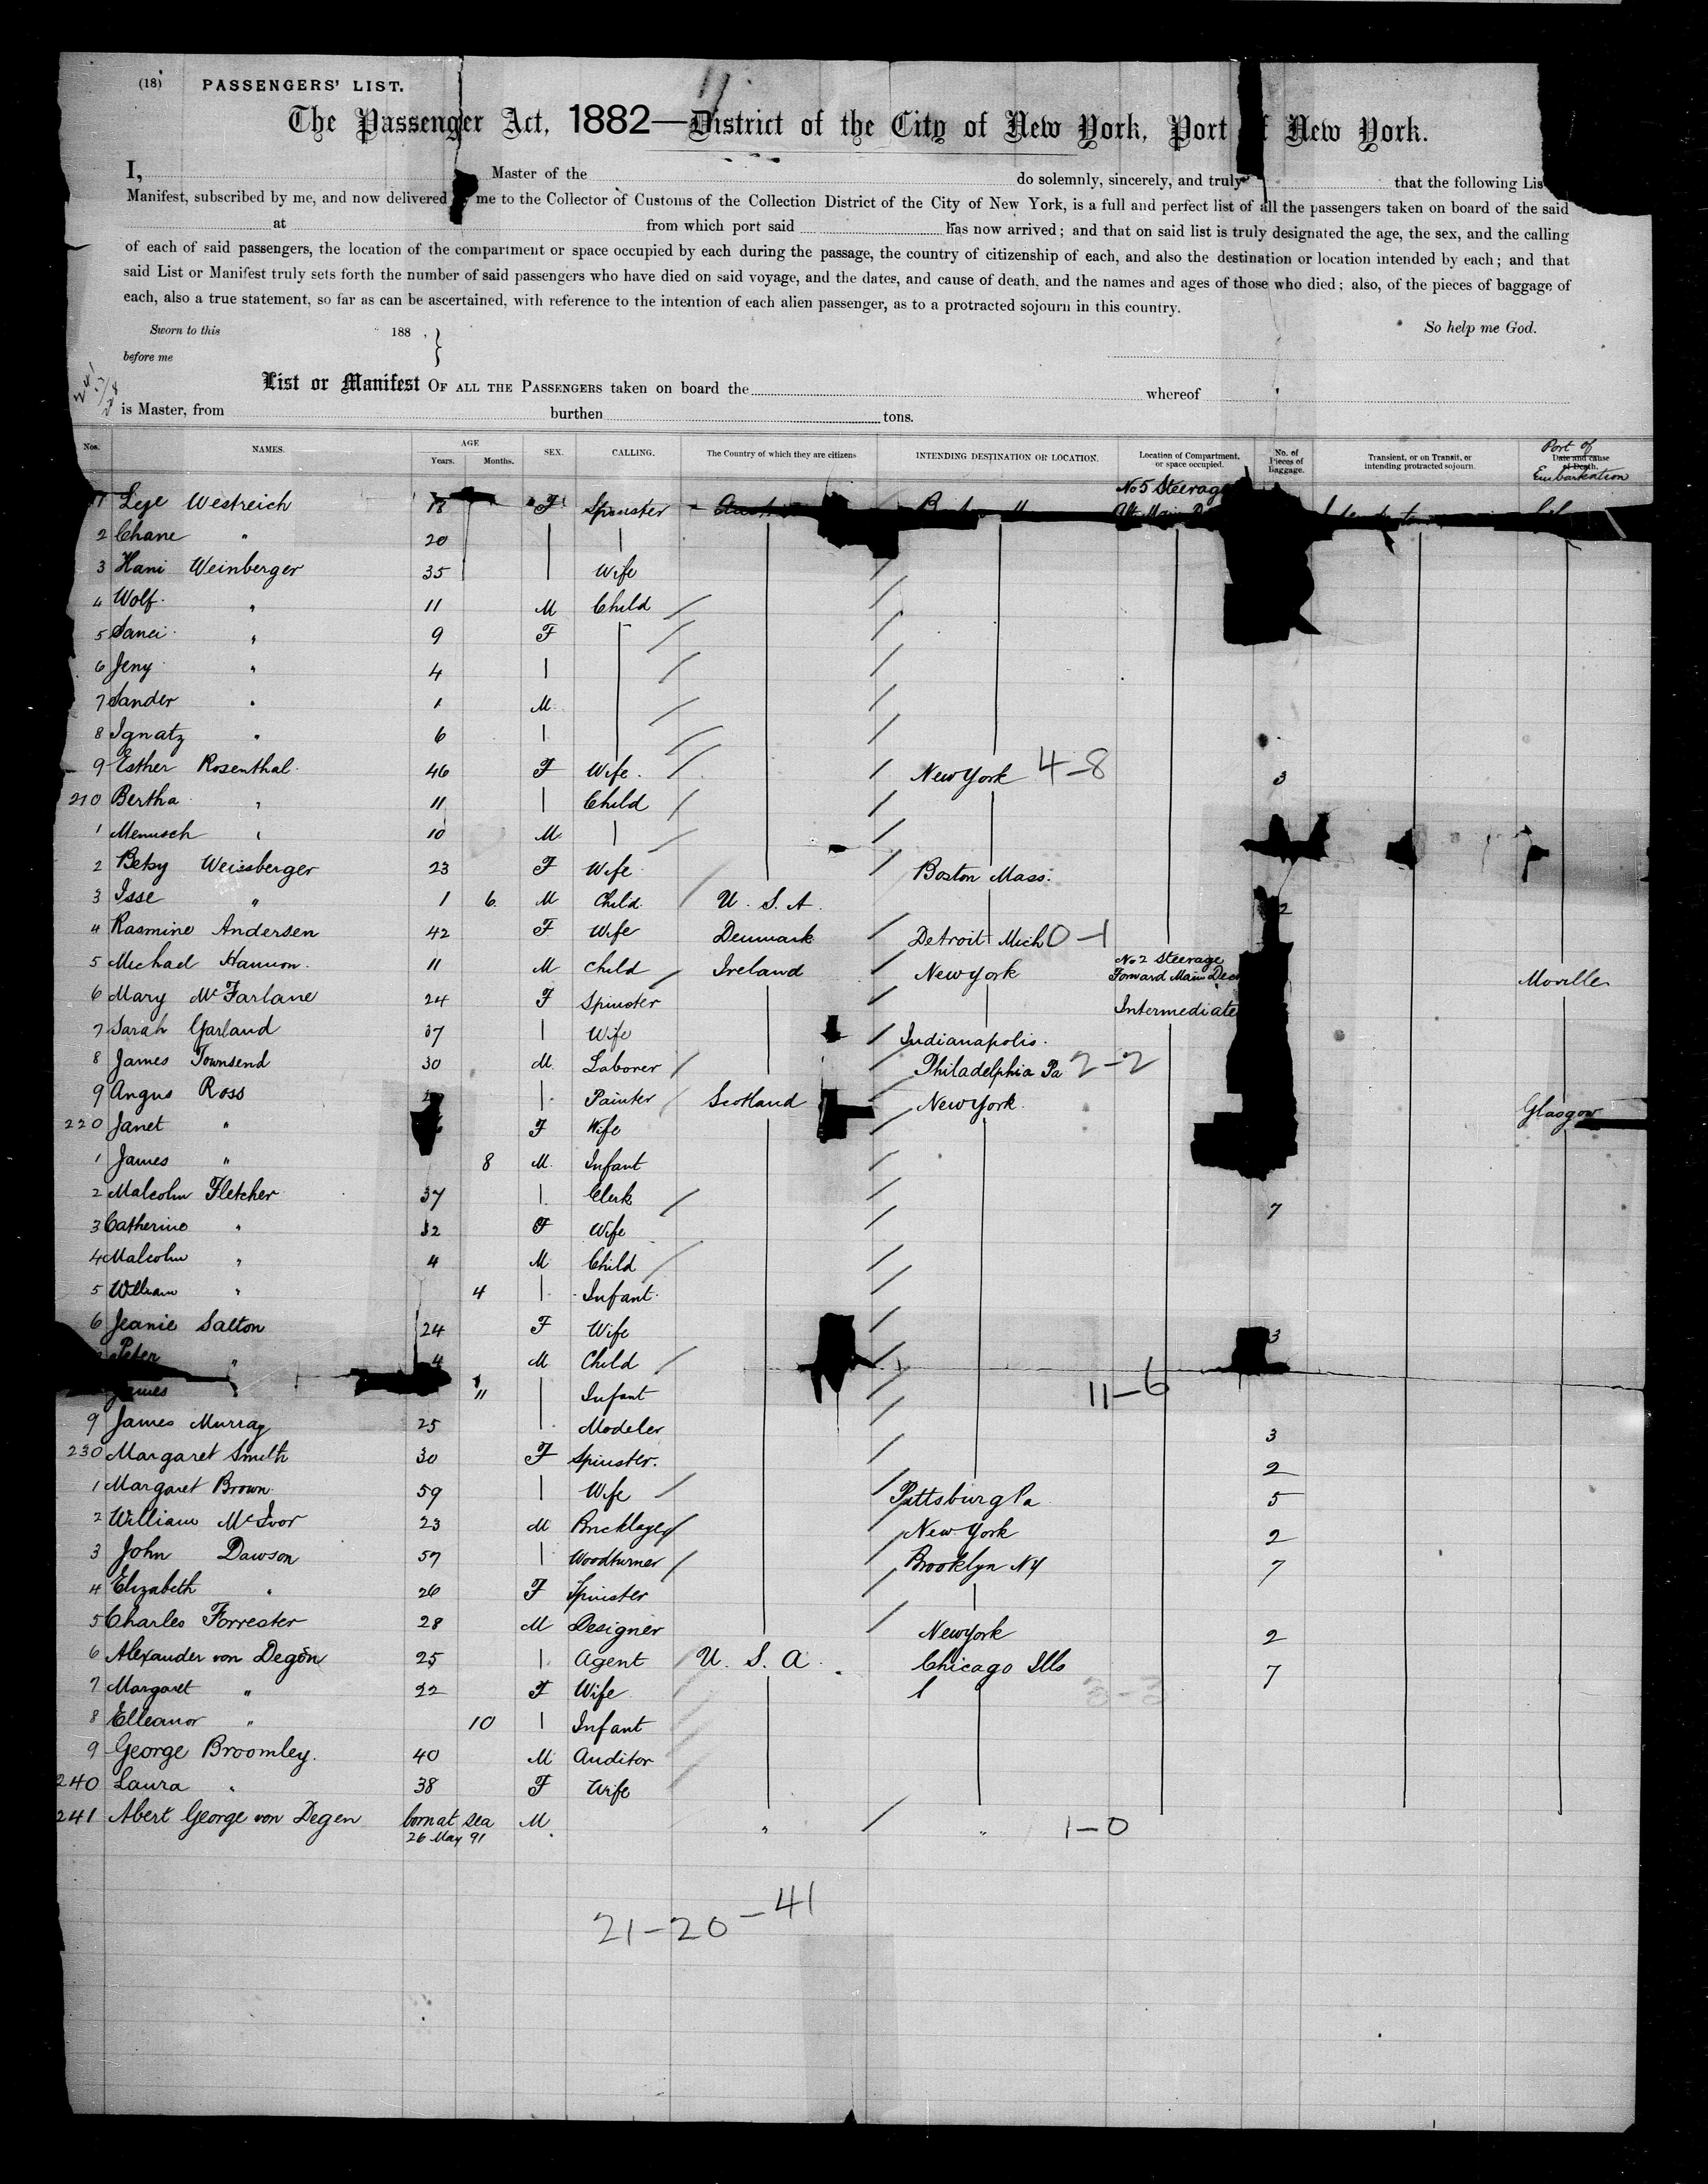 (18) PASSENGERS' LIST. 11
The Passenger Act, 1882—District of the City of New York, Port of New York.
I, Master of the do solemnly, sincerely, and truly that the following Lis
Manifest, subscribed by me, and now delivered me to the Collector of Customs of the Collection District of the City of New York, is a full and perfect list of all the passengers taken on board of the said
at from which port said has now arrived; and that on said list is truly designated the age, the sex, and the calling
of each of said passengers, the location of the compartment or space occupied by each during the passage, the country of citizenship of each, and also the destination or location intended by each; and that
said List or Manifest truly sets forth the number of said passengers who have died on said voyage, and the dates, and cause of death, and the names and ages of those who died; also, of the pieces of baggage of
each, also a true statement, so far as can be ascertained, with reference to the intention of each alien passenger, as to a protracted sojourn in this country.
Sworn to this 188 , So help me God.
before me
List or Manifest OF ALL THE PASSENGERS taken on board the whereof
is Master, from burthen tons.
Nos. NAMES. AGE Years. Months. SEX. CALLING. The Country of which they are citizens INTENDING DESTINATION OR LOCATION. Location of Compartment, or space occupied. No. of Pieces of Baggage. Transient, or on Transit, or intending protracted sojourn. Date and cause of Death. Port of Embarkation
1 Leje Westreich 18 F Spinster No 5 Steerage
2 Chane " 20
3 Hani Weinberger 35 Wife
4 Wolf " 11 M Child
5 Sanei " 9 F
6 Jeny " 4
7 Sander " 1 M
8 Ignatz " 6
9 Esther Rosenthal 46 F Wife New York 4-8 3
210 Bertha " 11 Child
1 Menusch " 10 M
2 Betsy Weissberger 23 F Wife Boston Mass.
3 Isse " 1 6 M Child U. S. A. 2
4 Rasmine Andersen 42 F Wife Denmark Detroit Mich 0-1
5 Michael Hannon 11 M Child Ireland New York No 2 Steerage Forward Main Deck Moville
6 Mary McFarlane 24 F Spinster Intermediate
7 Sarah Garland 37 Wife Indianapolis.
8 James Townsend 30 M Laborer Philadelphia Pa 2-2
9 Angus Ross Painter Scotland New York Glasgow
220 Janet " F Wife
1 James " 8 M Infant
2 Malcolm Fletcher 37 Clerk 7
3 Catherine " 32 F Wife
4 Malcolm " 4 M Child
5 William " 4 Infant
6 Jeanie Salton 24 F Wife 3
Peter " 4 M Child
James " 11 Infant 11-6
9 James Murray 25 Modeler 3
230 Margaret Smith 30 F Spinster. 2
1 Margaret Brown 59 Wife Pittsburg Pa 5
2 William McIvor 23 M Bricklayer New York 2
3 John Dawson 57 Woodturner Brooklyn NY 7
4 Elizabeth " 26 F Spinster
5 Charles Forrester 28 M Designer New York 2
6 Alexander von Degen 25 Agent U. S. A. Chicago Ills 7
7 Margaret " 22 F Wife 3-3
8 Elleanor " 10 Infant
9 George Broomley. 40 M Auditor
240 Laura " 38 F Wife
241 Abert George von Degen born at sea 26 May 91 M " " 1-0
21-20-41